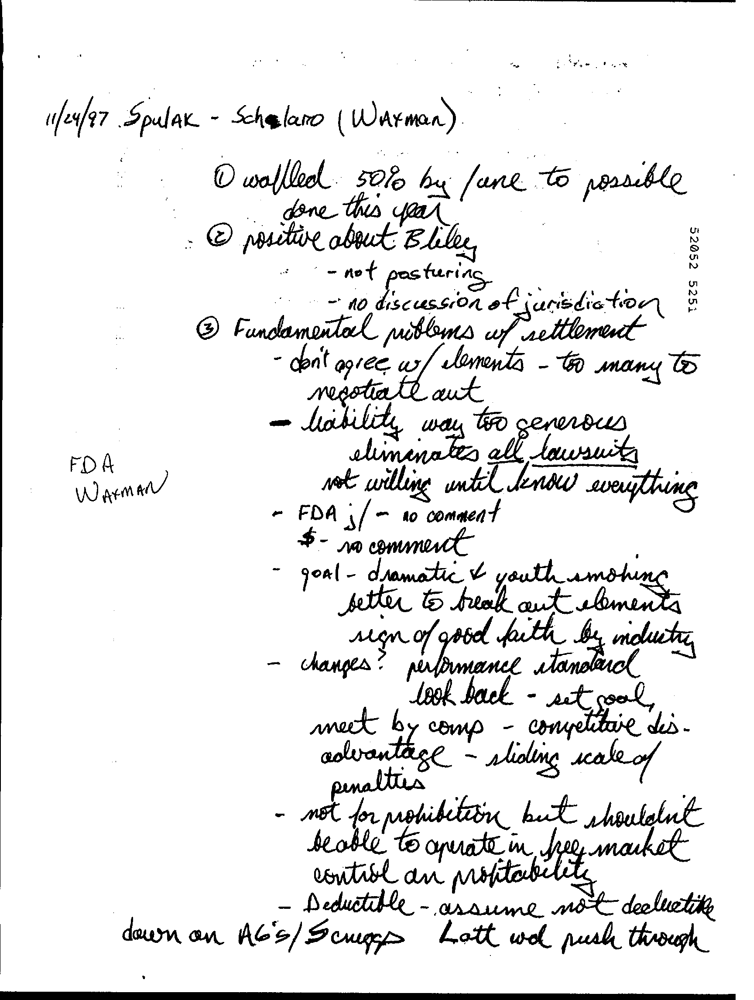 11/24/97 Spulak - Scholaro (Waxman)
① waffled 50% by June to possible
done this year
② positive about Bliley
- not posturing
- no discussion of jurisdiction
52052 5251
③ Fundamental problems w/ settlement
- don't agree w/ elements - too many to
negotiate out
- liability way too generous
eliminates all lawsuits
FDA
WAXMAN
not willing until know everything
- FDA j/ - no comment
$ - no comment
- goal - dramatic ↓ youth smoking
better to break out elements
sign of good faith by industry
- changes? performance standard
look back - set goal,
meet by comp - competitive dis-
advantage - sliding scale of
penalties
- not for prohibition but shouldn't
be able to operate in free market
control on profitability
- Deductible - assume not deductible
down on AG's/Scruggs Lott wd push through